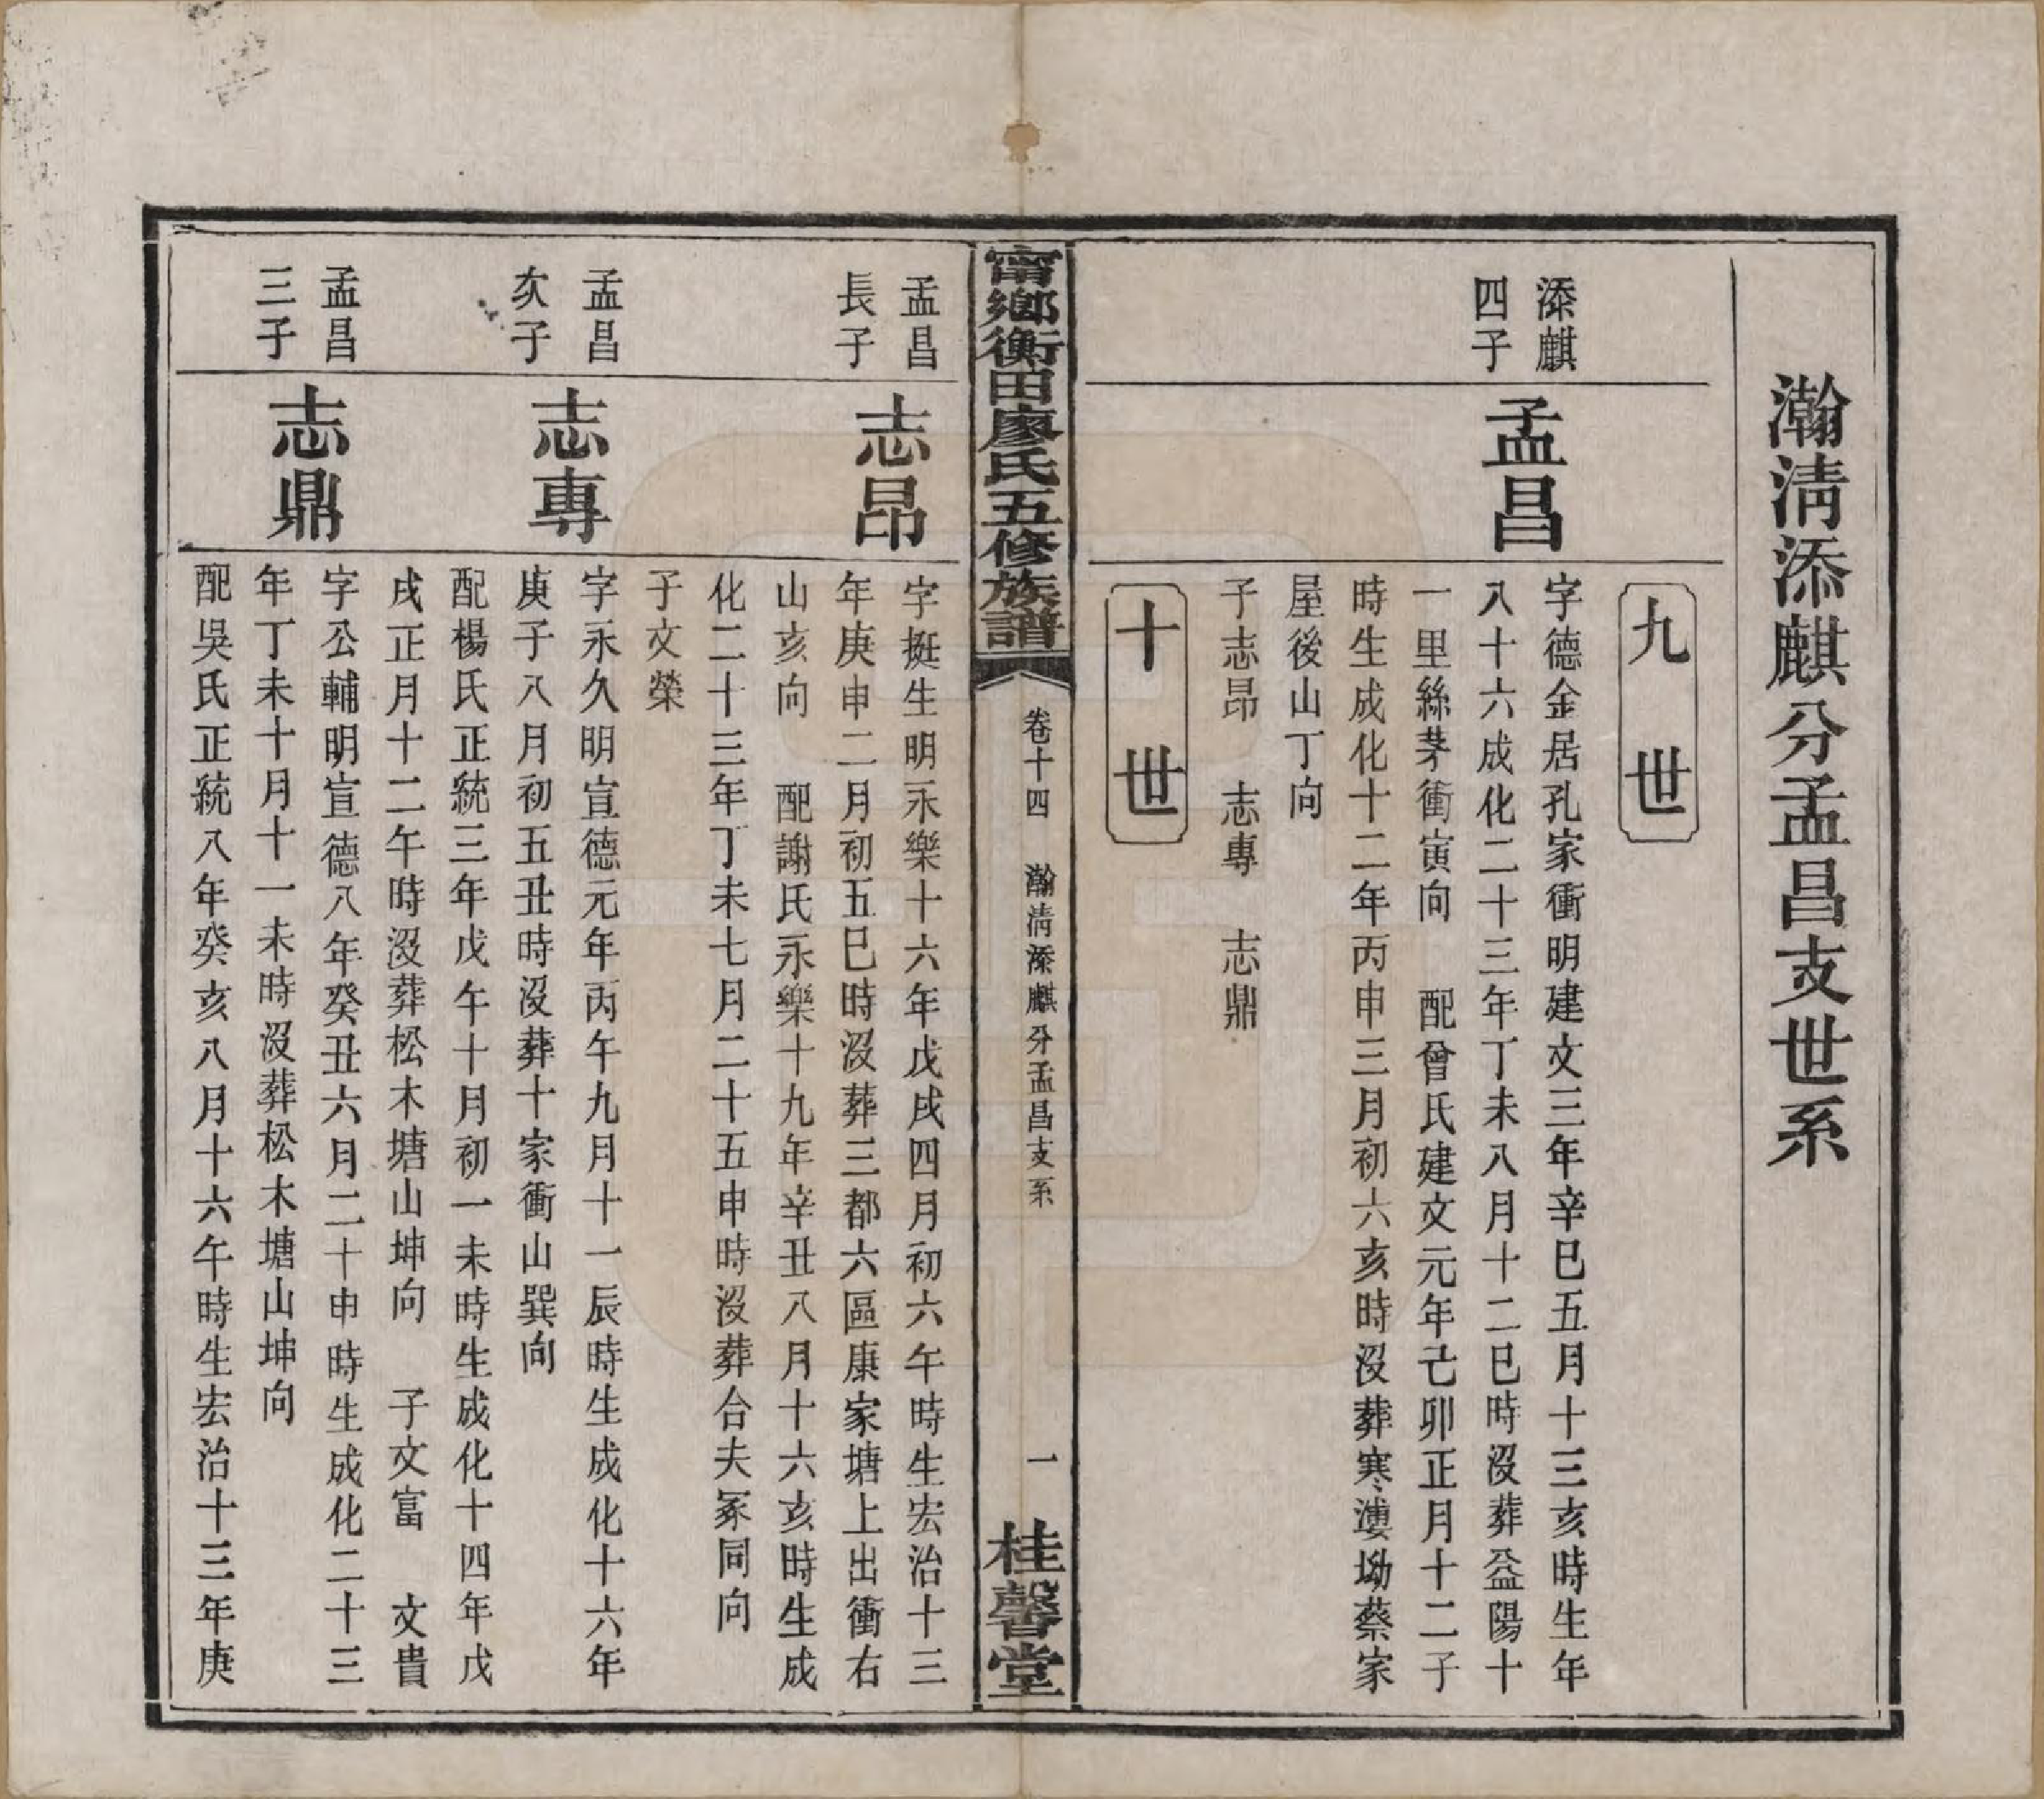 瀚淸添麒分孟昌支世系
九世
添麒
四子
孟昌
字德金居孔家衝明建文三年辛巳五月十三亥時生年
八十六成化二十三年丁未八月十二巳時沒葬益陽十
一里絲茅衝寅向　配曾氏建文元年己卯正月十二子
時生成化十二年丙申三月初六亥時沒葬寒漊坳蔡家
屋後山丁向
子志昂　志專　志鼎
十世
甯鄉衡田廖氏五修族譜
卷十四　瀚淸添麒分孟昌支系
一
桂馨堂
孟昌
長子
志昂
字挺生明永樂十六年戊戌四月初六午時生宏治十三
年庚申二月初五巳時沒葬三都六區康家塘上出衝右
山亥向　配謝氏永樂十九年辛丑八月十六亥時生成
化二十三年丁未七月二十五申時沒葬合夫冢同向
子文榮
孟昌
次子
志專
字永久明宣德元年丙午九月十一辰時生成化十六年
庚子八月初五丑時沒葬十家衝山巽向
配楊氏正統三年戊午十月初一未時生成化十四年戊
戌正月十二午時沒葬松木塘山坤向　子文富　文貴
孟昌
三子
志鼎
字公輔明宣德八年癸丑六月二十申時生成化二十三
年丁未十月十一未時沒葬松木塘山坤向
配吳氏正統八年癸亥八月十六午時生宏治十三年庚